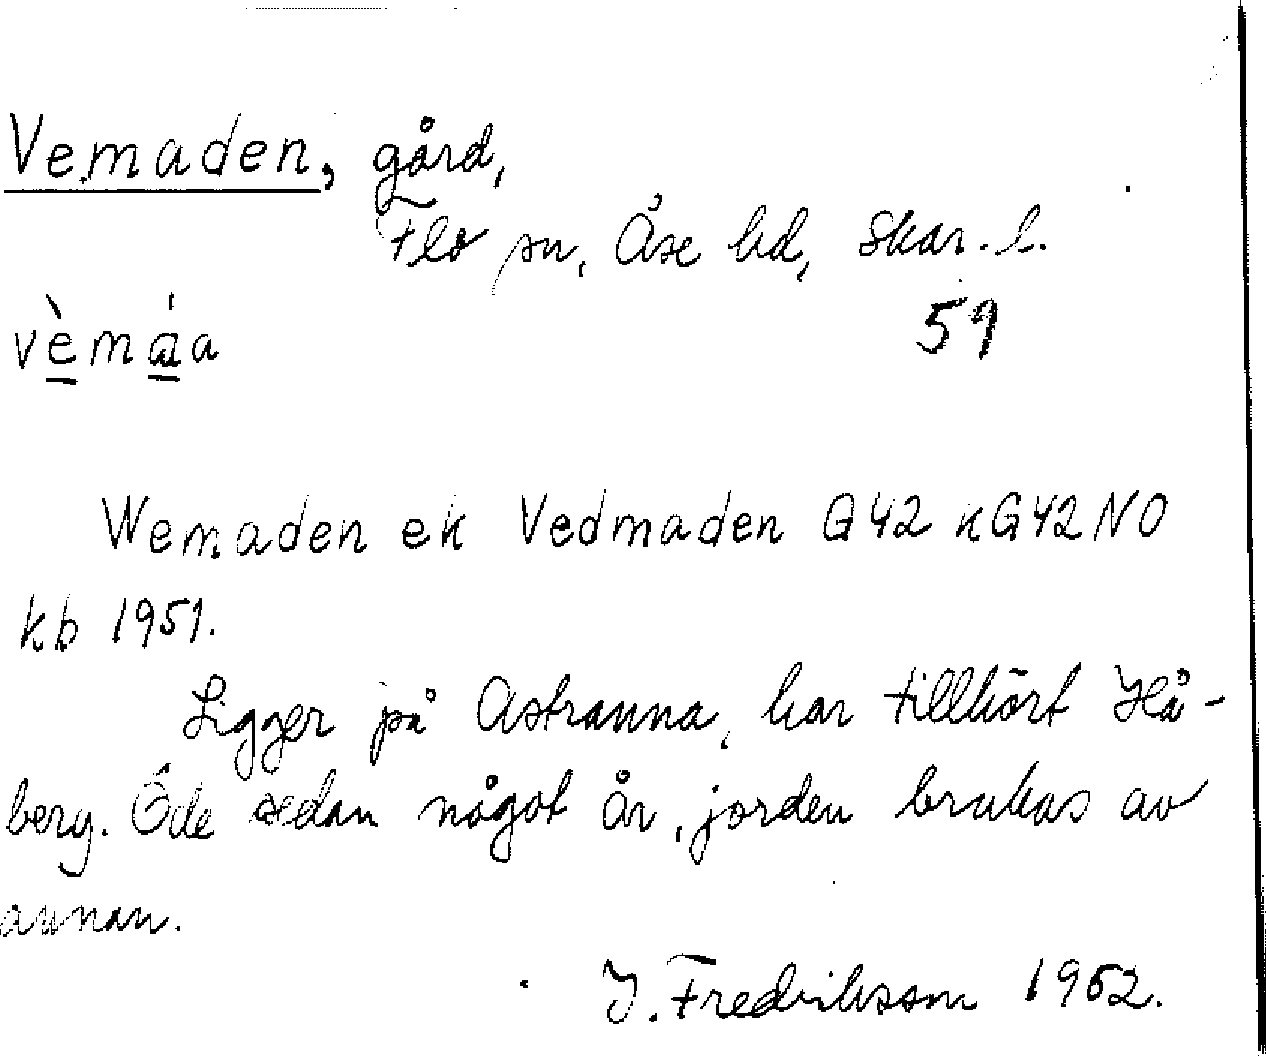 Vemaden, gård,
Flo sn, Åse hd, Skar. l.
vèmáa 59
Wemaden ek Vedmaden G42 kG42NO
kb 1951.
Ligger på Astranna, har tillhört Hå-
berg. Öde sedan något år, jorden brukas av
annan.
Y. Fredriksson 1952.